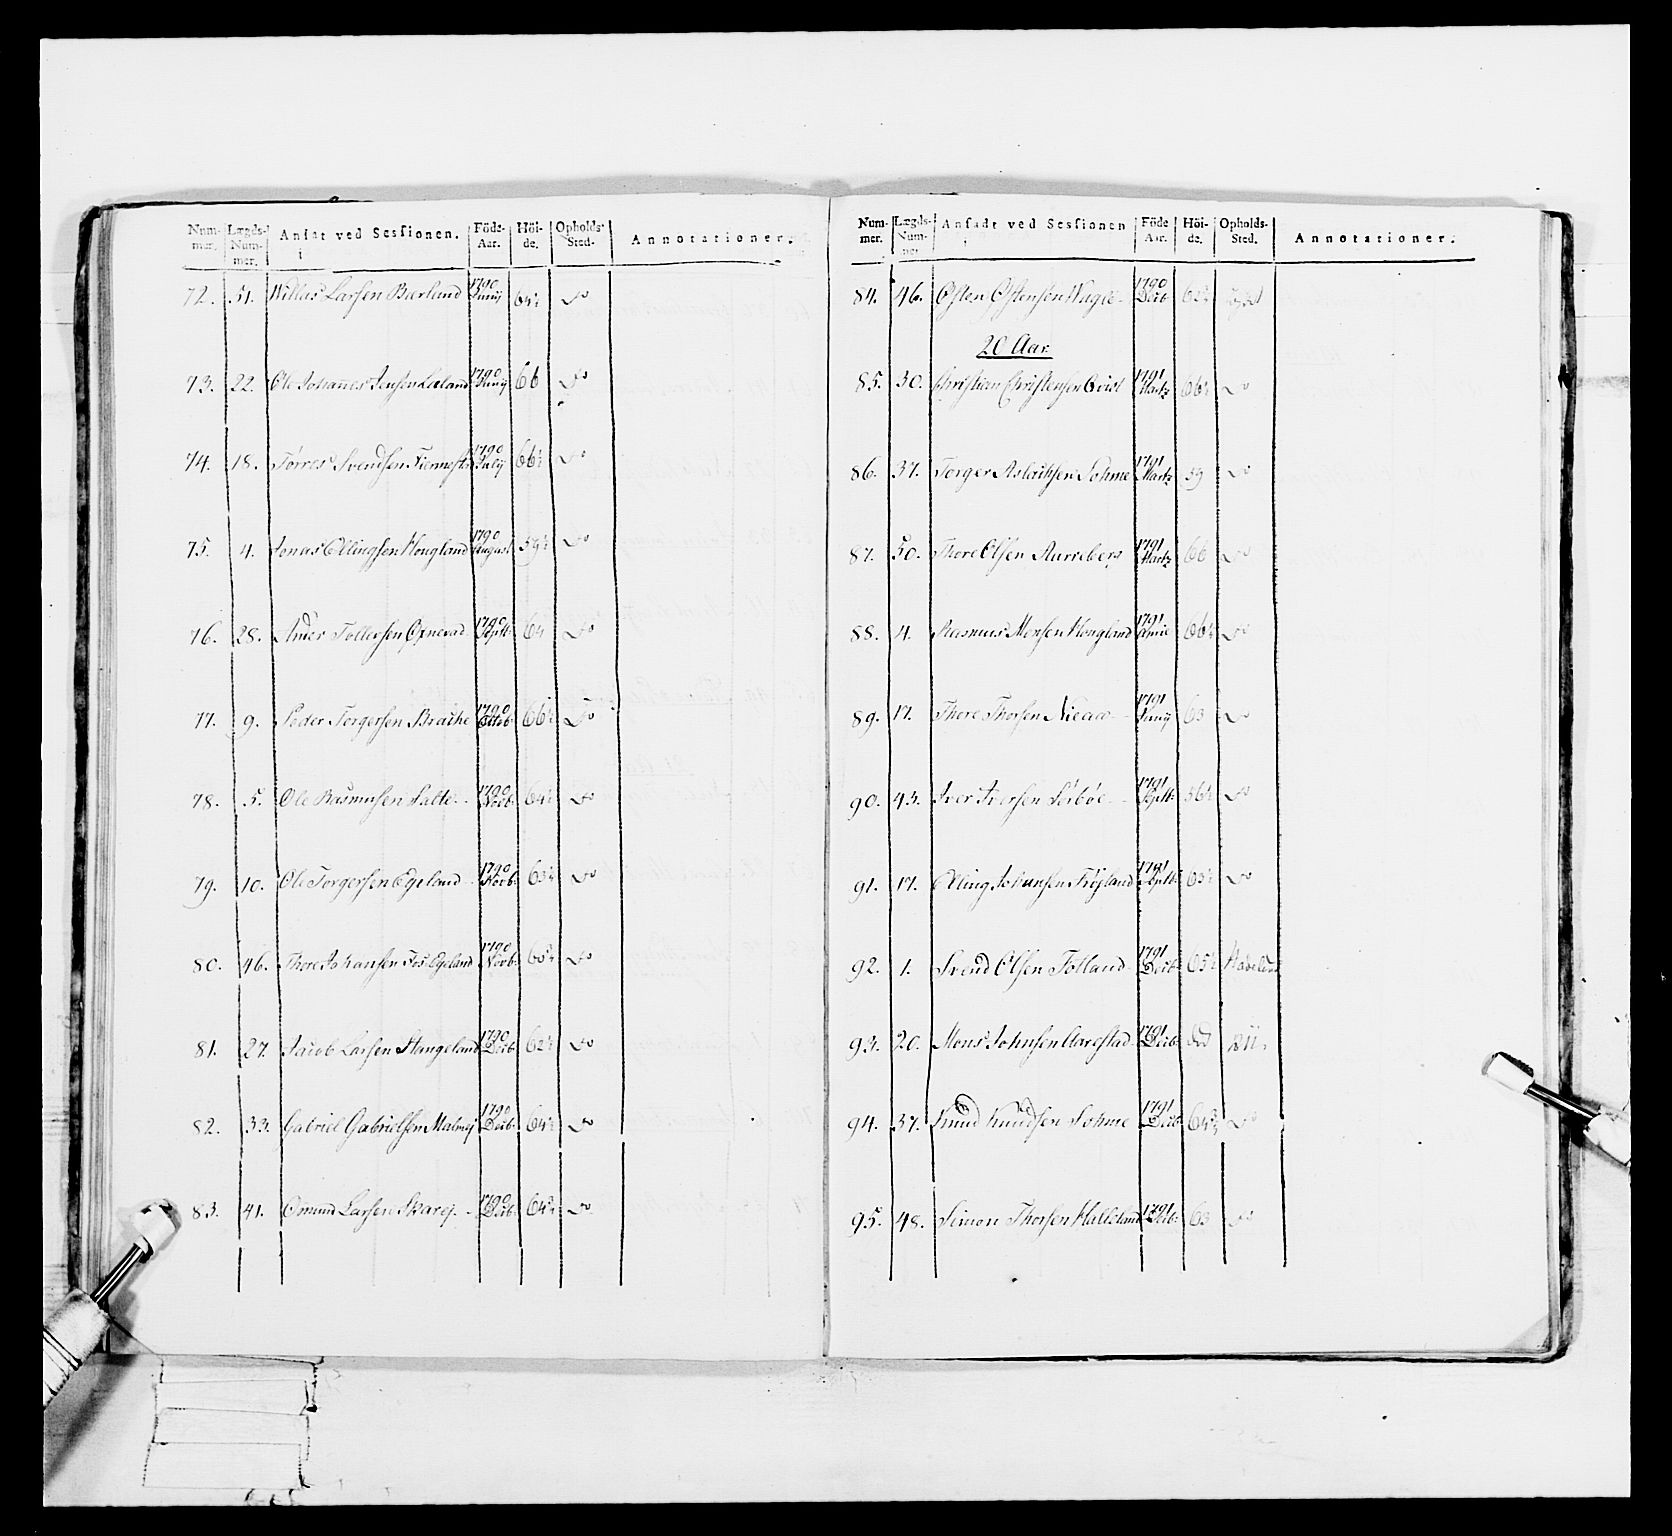 Num- Lægds- Ansat ved Sessionen. Föde- Höi- Opholds-
mer. Num- Aar. de. Sted. Annotationer.
mer.
72. 51. Larsen Bærland 1790 Juny 64½ Do
73. 22. Ole Johannes Jensen Læland 1790 Juny 66 Do
74. 18. Tørres Svendsen 1790 July 66½ Do
75. 4. Jonas Ellingsen Hougland 1790 August 59½ Do
76. 28. Tollefsen 1790 Septb: 64 Do
77. 9. Peder Torgersen Brache 1790 Octob: 66½ Do
78. 5. Ole Rasmusen Salte 1790 Novb: 64½ Do
79. 10. Ole Torgersen Egeland 1790 Novb: 63½ Do
80. 46. Thore Johansen Fos Egeland 1790 Novb: Do
81. 27. Jacob Larsen Stangeland 1790 Decb: 62½ Do
82. 33. Gabriel Gabrielsen Malmej 1790 Decb: 64½ Do
83. 41. Omund Larsen Skarej 1790 Decb: Do
Num- Lægds- Ansadt ved Sessionen Föde Höi- Opholds-
mer. Num- Aar. de. Sted. Annotationer.
mer
84. 46. Østen Østensen Wagle 1790 Decb:
20 Aar
85. 30. Christian Christensen Qvist 1791 Martz 66½ Do
86. 37. Torger Aslachsen Sohme 1791 Martz 59 Do
87. 50. Thore Olsen 1791 Martz 66 Do
88. 4. Rasmus Monsen Hougland 1791 66½ Do
89. 17. Thore Thorsen Nieaae 1791 Juny 63 Do
90. 43. Iver Iversen Sørbøe 1791 Septb: 56½ Do
91. 17. Elling Johansen Frøyland 1791 Septb: 63½ Do
92. 1. Svend Olsen Totland 1791 Decb: 65½
93. 20. Mons Johnsen Aarestad 1791 Decb:
94. 37. Knud Knudsen Sohme 1791 Decb: 64¾ Do
95. 48. Simon Thorsen Halleland 1791 Decb: 63 Do